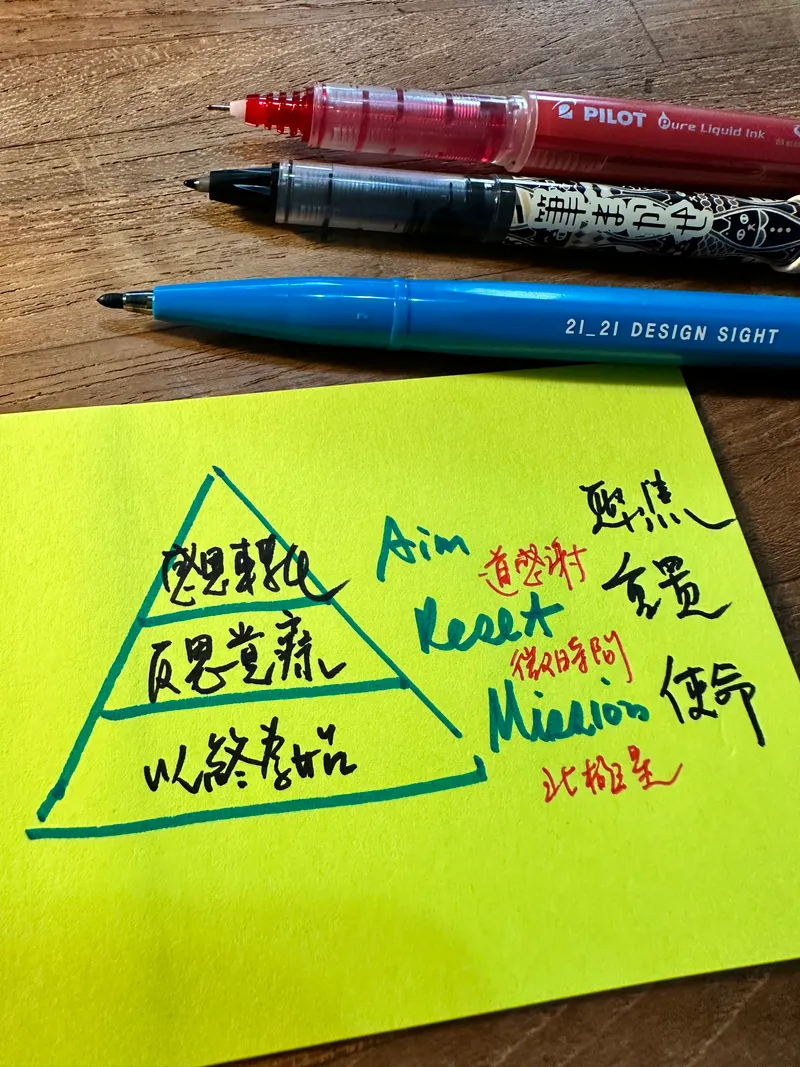 PILOT Pure Liquid Ink
筆まかせ
21_21 DESIGN SIGHT
聚焦
Aim
道感謝
感恩轉化
重置
Reset
反思覺察
微時間
使命
Mission
以終為始
北極星